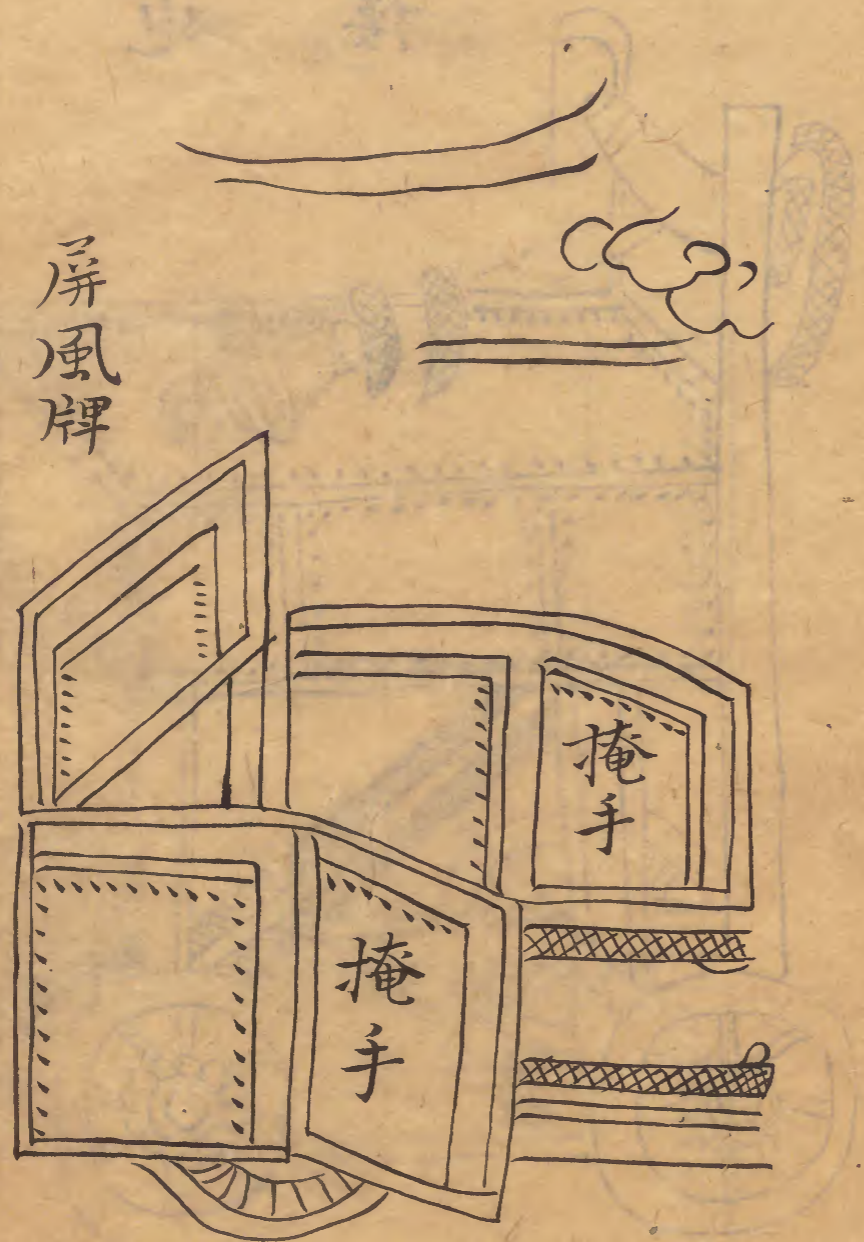 屏風牌
掩手
掩手